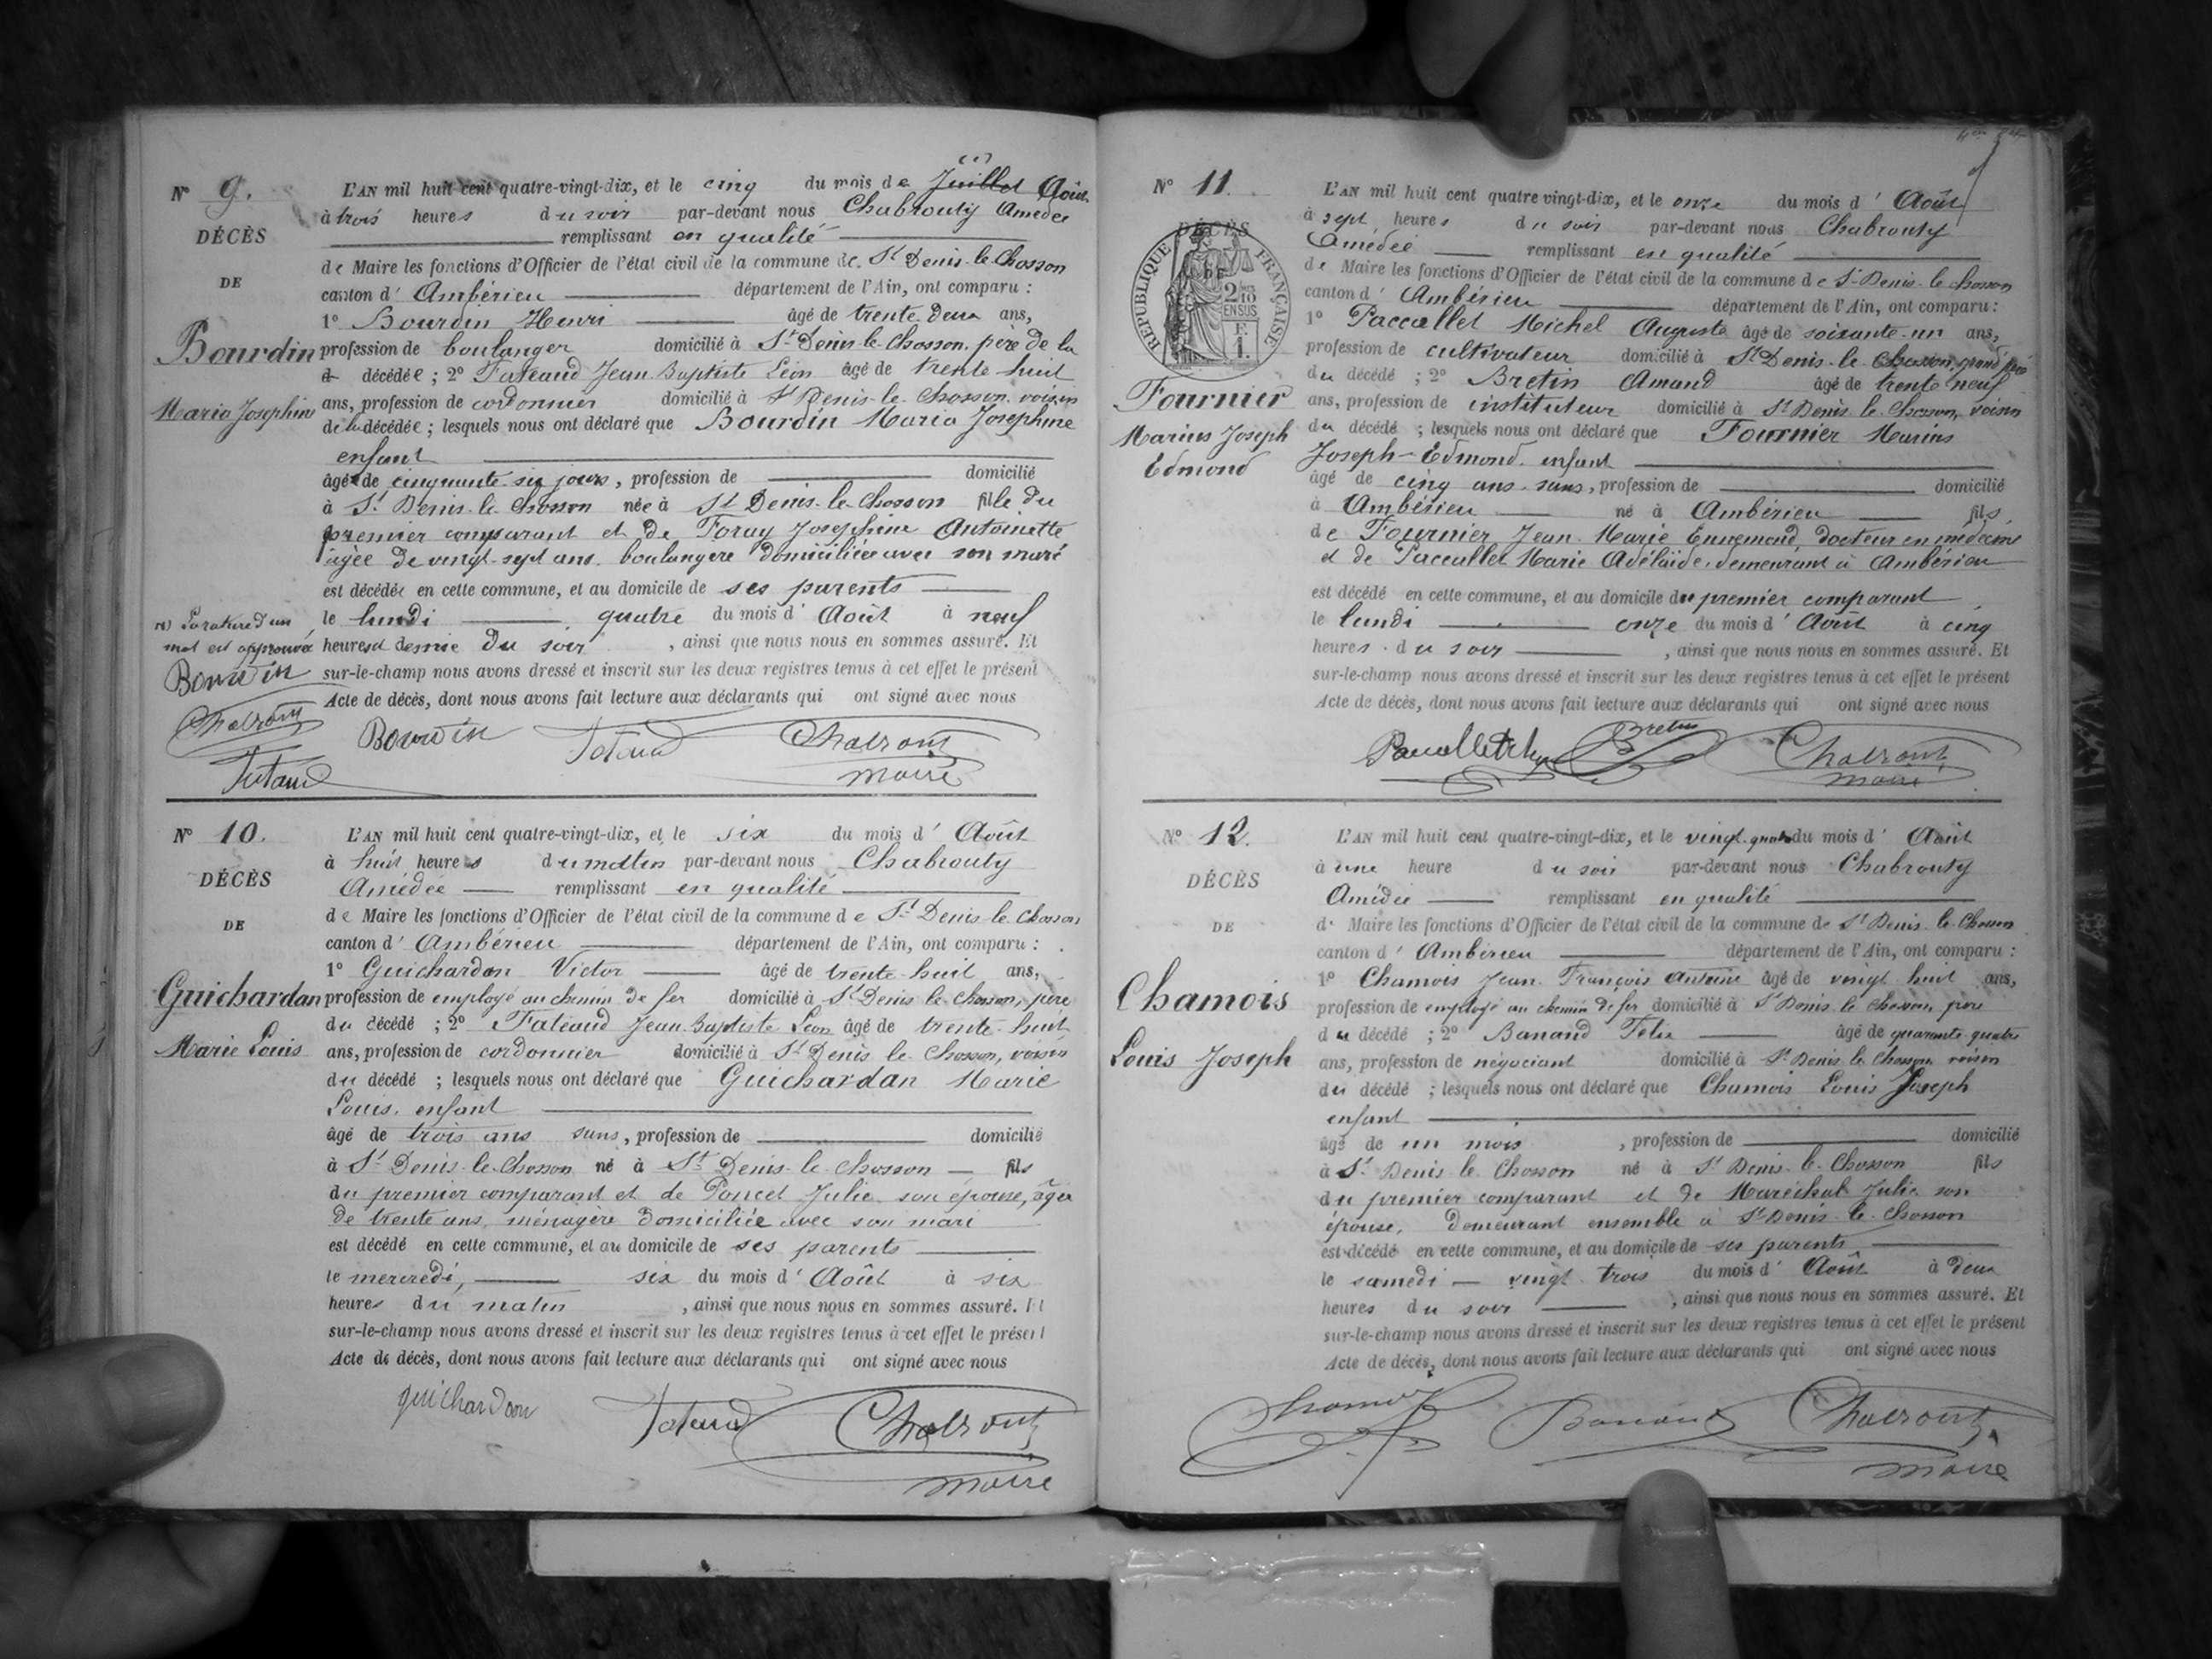 N° 9.
DÉCÈS
DE
Bourdin
Maria Josephine
L'AN mil huit cent quatre-vingt-dix, et le cinq du mois de Juillet Août
à trois heures du soir par-devant nous Chabrouty Amédée
remplissant en qualité
de Maire les fonctions d'Officier de l'état civil de la commune de St Denis-le-Chosson
canton d'Ambérieu département de l'Ain, ont comparu :
1° Bourdin Henri âgé de trente-deux ans,
profession de boulanger domicilié à St Denis-le-Chosson, père de la
décédée ; 2° Fatéaud Jean Baptiste Léon âgé de trente-huit
ans, profession de cordonnier domicilié à St Denis-le-Chosson, voisin
de la décédée ; lesquels nous ont déclaré que Bourdin Maria Josephine
enfant
âgée de cinquante-six jours, profession de domicilié
à St Denis-le-Chosson née à St Denis-le-Chosson fille du
premier comparant et de Foray Josephine Antoinette
âgée de vingt-sept ans, boulangère domiciliée avec son mari
est décédée en cette commune, et au domicile de ses parents
le lundi quatre du mois d'Août à neuf
heures et demie du soir, ainsi que nous nous en sommes assuré. Et
sur-le-champ nous avons dressé et inscrit sur les deux registres tenus à cet effet le présent
Acte de décès, dont nous avons fait lecture aux déclarants qui ont signé avec nous
(1) La rature d'un
mot est approuvée
Bourdin
Chabrouty
Fataud
Bourdin Fataud Chabrouty
maire
N° 10.
DÉCÈS
DE
Guichardan
Marie Louis
L'AN mil huit cent quatre-vingt-dix, et le six du mois d'Août
à huit heures du matin par-devant nous Chabrouty
Amédée remplissant en qualité
de Maire les fonctions d'Officier de l'état civil de la commune de St Denis-le-Chosson
canton d'Ambérieu département de l'Ain, ont comparu :
1° Guichardan Victor âgé de trente-huit ans,
profession de employé au chemin de fer domicilié à St Denis-le-Chosson, père
du décédé ; 2° Fatéaud Jean-Baptiste Léon âgé de trente-huit
ans, profession de cordonnier domicilié à St Denis-le-Chosson, voisin
du décédé ; lesquels nous ont déclaré que Guichardan Marie
Louis, enfant
âgé de trois ans sans, profession de domicilié
à St Denis-le-Chosson né à St Denis-le-Chosson fils
du premier comparant et de Poncet Julie son épouse, âgée
de trente ans, ménagère domiciliée avec son mari
est décédé en cette commune, et au domicile de ses parents
le mercredi, six du mois d'Août à six
heures du matin, ainsi que nous nous en sommes assuré. Et
sur-le-champ nous avons dressé et inscrit sur les deux registres tenus à cet effet le présent
Acte de décès, dont nous avons fait lecture aux déclarants qui ont signé avec nous
guichardan Fataud Chabrouty
maire
N° 11.
DÉCÈS
DE
RÉPUBLIQUE FRANÇAISE
2/10 EN SUS
1 F.
Fournier
Marius Joseph
Edmond
L'AN mil huit cent quatre vingt-dix, et le onze du mois d'Août
à sept heures du soir par-devant nous Chabrouty
Amédée remplissant en qualité
de Maire les fonctions d'Officier de l'état civil de la commune de St-Denis-le-Chosson
canton d'Ambérieu département de l'Ain, ont comparu :
1° Paccallet Michel Auguste âgé de soixante-un ans,
profession de cultivateur domicilié à St Denis-le-Chosson, grand père
du décédé ; 2° Bretin Amand âgé de trente neuf
ans, profession de instituteur domicilié à St Denis-le-Chosson, voisin
du décédé ; lesquels nous ont déclaré que Fournier Marius
Joseph-Edmond, enfant
âgé de cinq ans sans, profession de domicilié
à Ambérieu né à Ambérieu fils
de Fournier Jean-Marie Ennemond docteur en médecine
et de Paccallet Marie Adélaïde, demeurant à Ambérieu
est décédé en cette commune, et au domicile du premier comparant
le lundi onze du mois d'Août à cinq
heures du soir, ainsi que nous nous en sommes assuré. Et
sur-le-champ nous avons dressé et inscrit sur les deux registres tenus à cet effet le présent
Acte de décès, dont nous avons fait lecture aux déclarants qui ont signé avec nous
Bretin Chabrouty
maire
N° 12.
DÉCÈS
DE
Chamois
Louis Joseph
L'AN mil huit cent quatre-vingt-dix, et le vingt-quatre du mois d'Août
à une heure du soir par-devant nous Chabrouty
Amédée remplissant en qualité
de Maire les fonctions d'Officier de l'état civil de la commune de St Denis-le-Chosson
canton d'Ambérieu département de l'Ain, ont comparu :
1° Chamois Jean François Antoine âgé de vingt huit ans,
profession de employé au chemin de fer domicilié à St Denis-le-Chosson, père
du décédé ; 2° Banand Félix âgé de quarante-quatre
ans, profession de négociant domicilié à St Denis-le-Chosson voisin
du décédé ; lesquels nous ont déclaré que Chamois Louis Joseph
enfant
âgé de un mois, profession de domicilié
à St Denis-le-Chosson né à St Denis-le-Chosson fils
du premier comparant et de Maréchal Julie son
épouse, demeurant ensemble à St Denis-le-Chosson
est décédé en cette commune, et au domicile de ses parents
le samedi vingt-trois du mois d'Août à deux
heures du soir, ainsi que nous nous en sommes assuré. Et
sur-le-champ nous avons dressé et inscrit sur les deux registres tenus à cet effet le présent
Acte de décès, dont nous avons fait lecture aux déclarants qui ont signé avec nous
Chamois Banand Chabrouty
maire